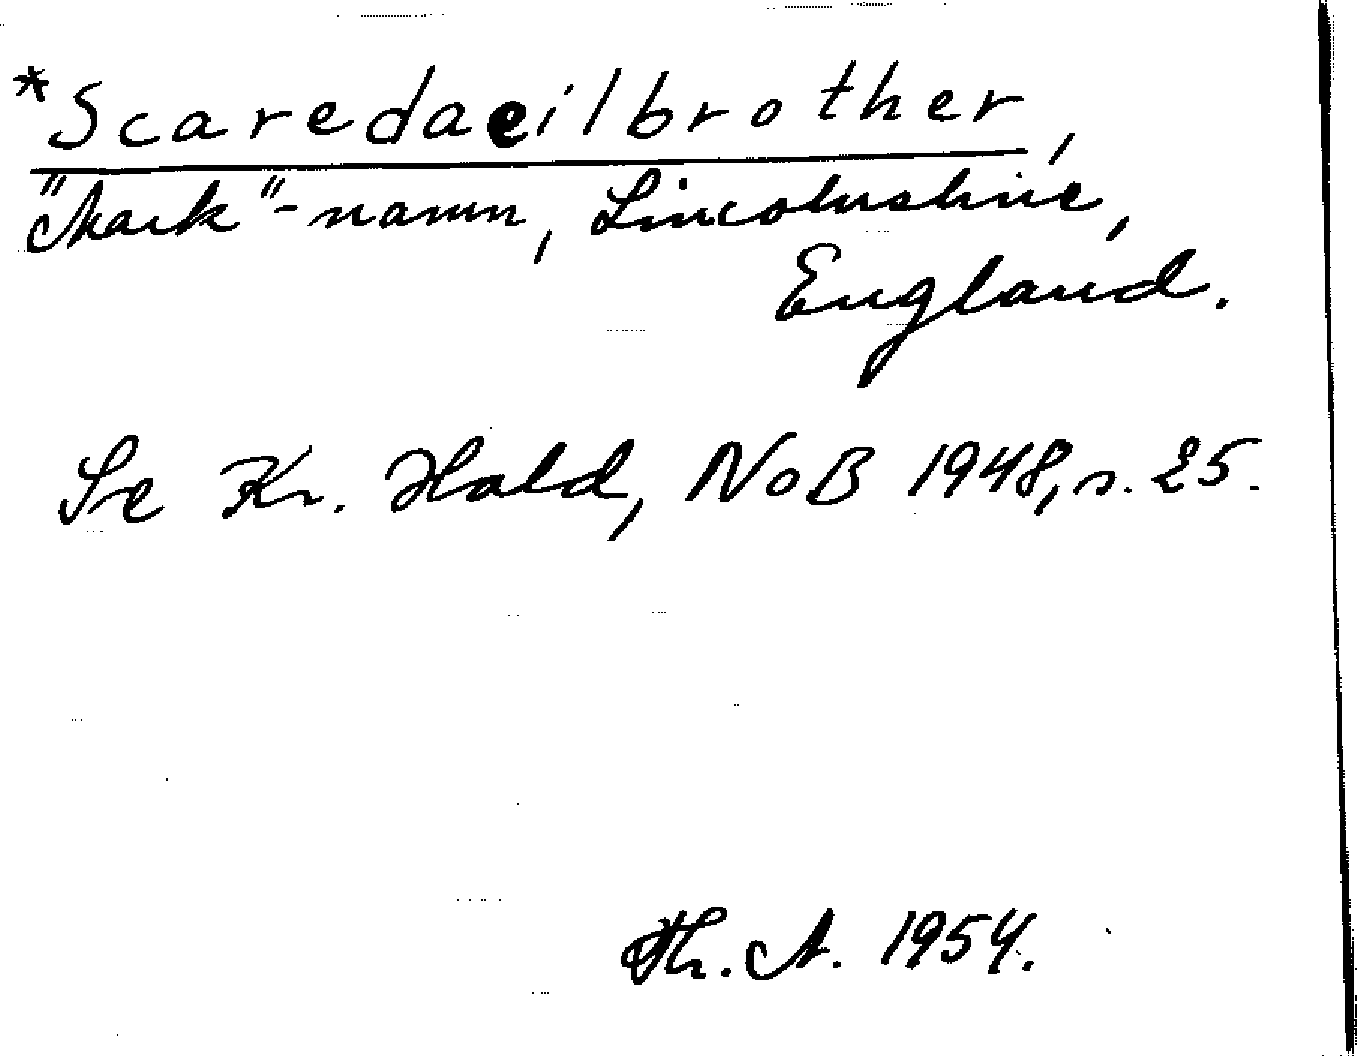 *Scaredaeilbrother,
"Mark"-namn, Lincolnshire,
England.
Se Kr. Hald, NoB 1948, s. 25.
Th. A. 1954.